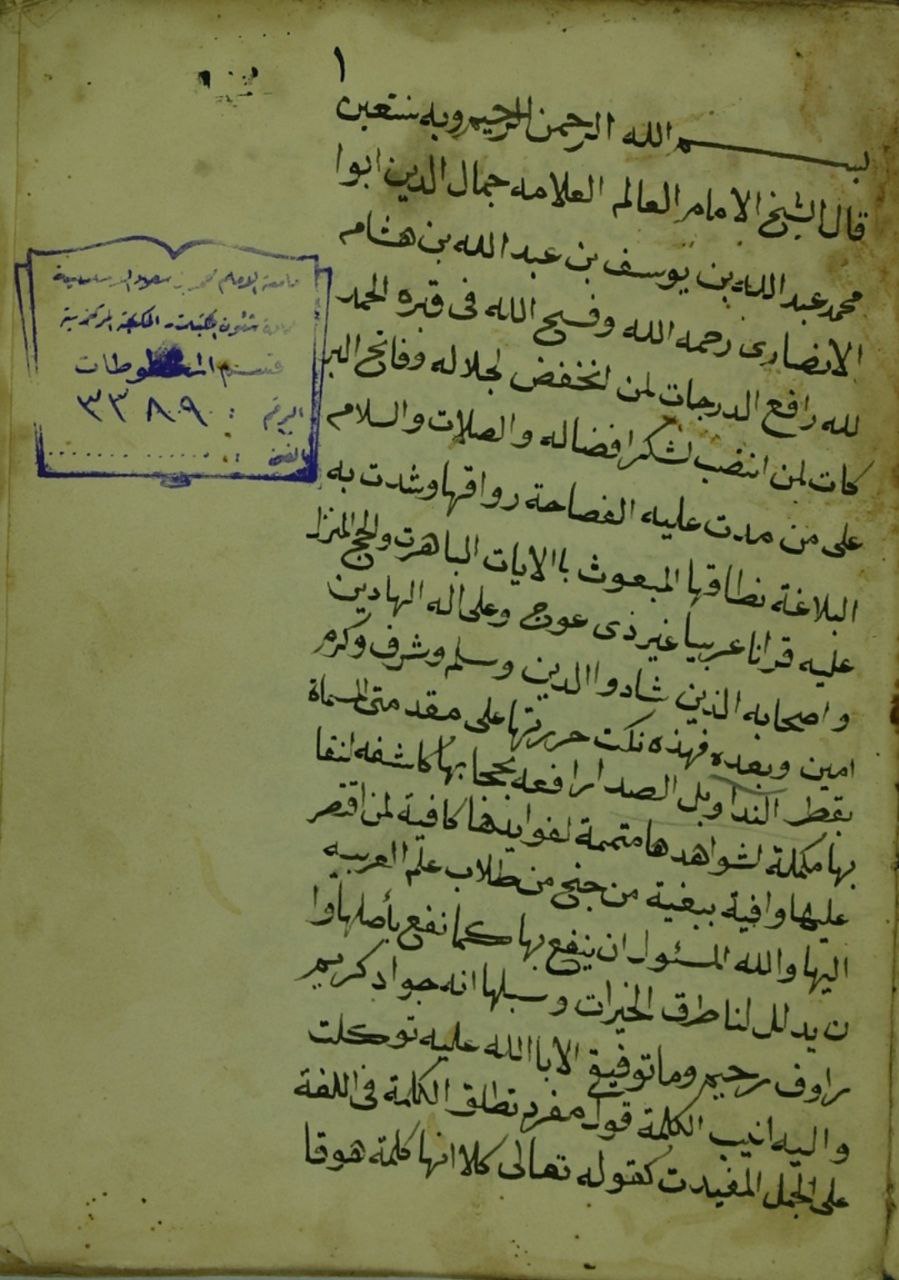 ١
بسم الله الرحمن الرحيم وبه نستعين
قال الشيخ الامام العالم العلامه جمال الدين ابوا
محمد عبد الله بن يوسف بن عبد الله بن هشام
الانصارى رحمه الله وفسح الله فى قبره الحمد
لله رافع الدرجات لمن انخفض لجلاله وفاتح البر
كات لمن انتصب لشكر افضاله والصلات والسلام
على من مدت عليه الفصاحة رواقها وشدت به
البلاغة نطاقها المبعوث باالايات الباهرت والحجج المنزل
عليه قرانا عربيا غير ذى عوج وعلى اله الهادين
واصحابه الذين شادوا الدين وسلم وشرف وكرم
امين وبعده فهذه نكت حررتها على مقدمتى المسماة
بقطر الندا وبل الصدا رافعه لحجابها كاشفه لنقا
بها مكملة لشواهدها متممة لفوايدها كافية لمن اقتصر
عليها وافية ببغية من جنح من طلاب علم العربيه
اليها والله المسئول ان ينفع بها كما نفع بأصلها وا
ن يدلل لنا طرق الخيرات وسبلها انه جواد كريم
راوف رحيم وما توفيقى الا باالله عليه توكلت
واليه انيب الكلمة قول مفرد تطلق الكلمة فى اللغة
على الجمل المفيدت كقوله تعالى كلا انها كلمة هو قا
جامعة الامام محمد بن سعود الاسلامية
عمادة شئون المكتبات - المكتبة المركزية
قسم المخطوطات
الرقم : ٣٣٨٩